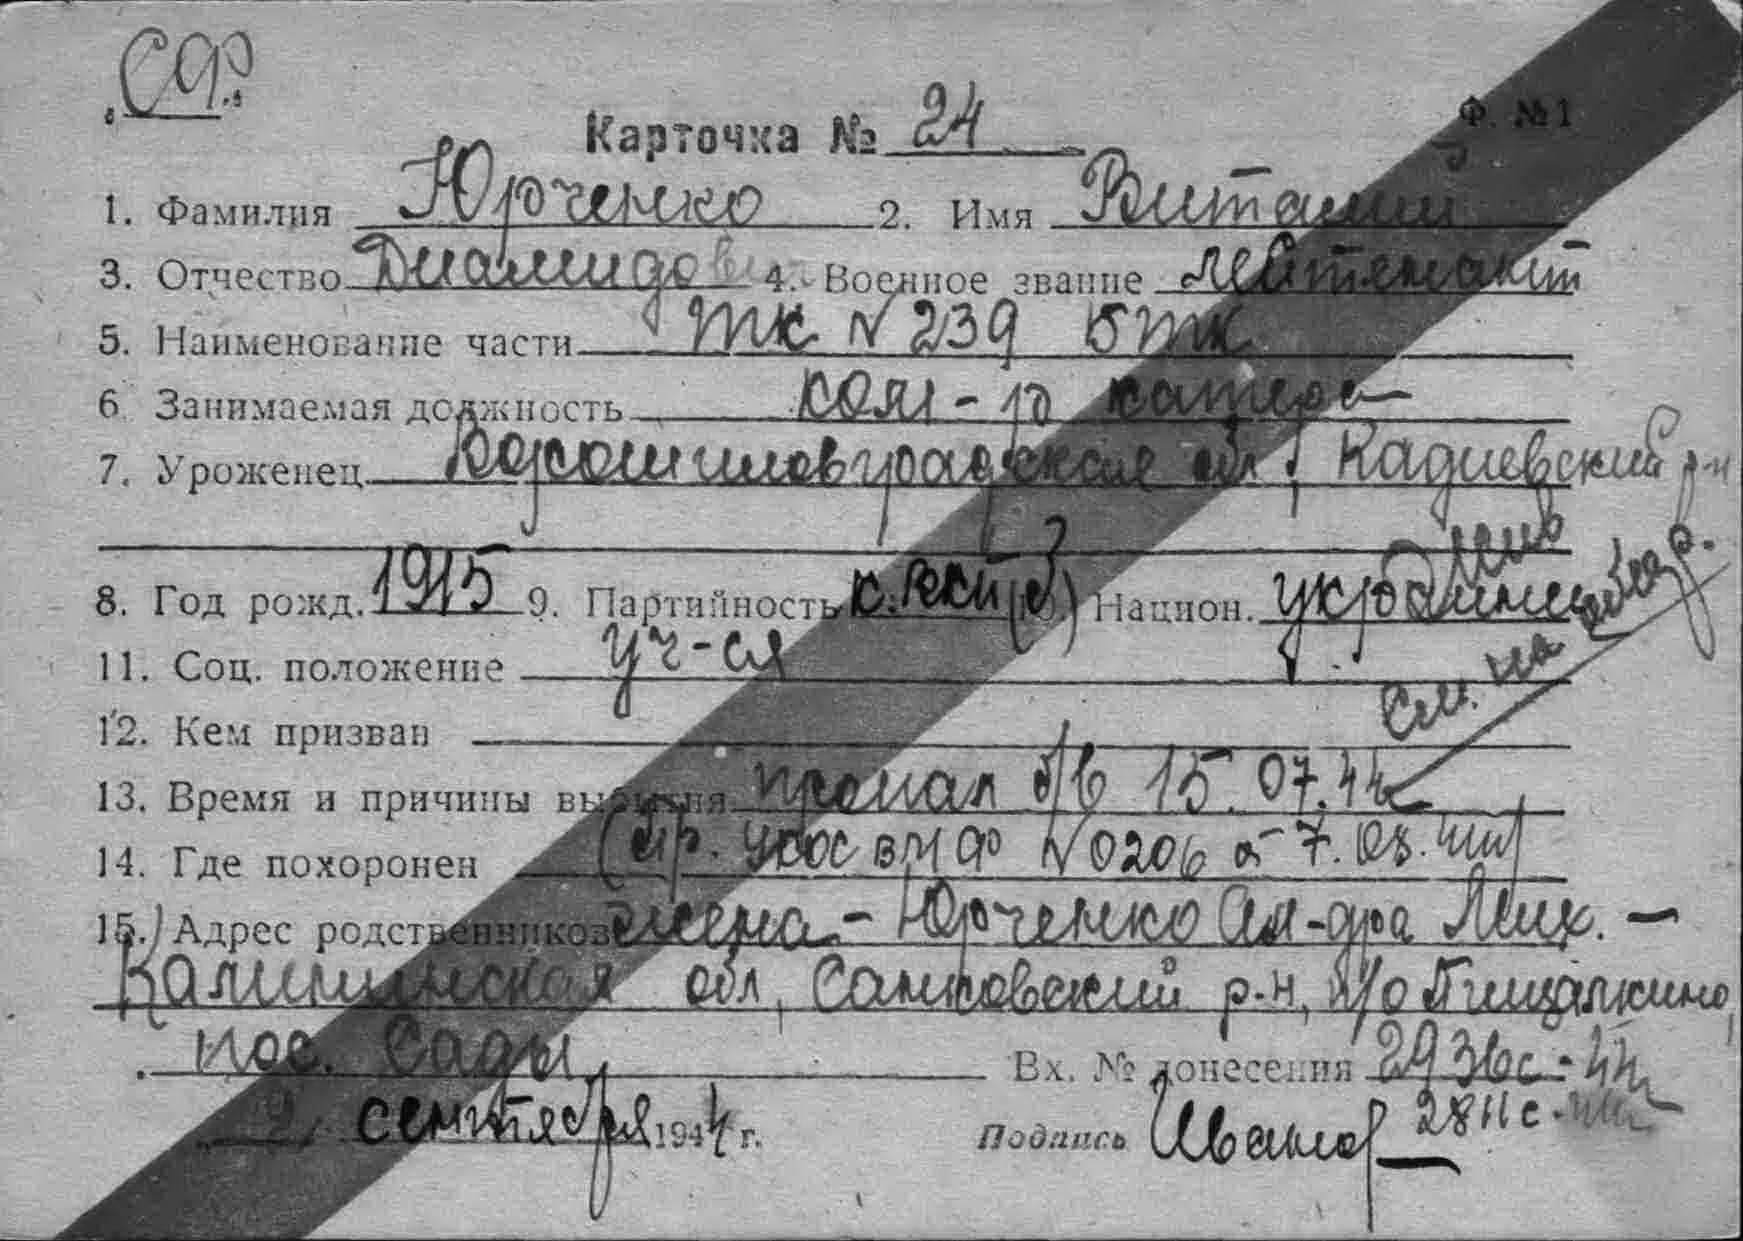 СФ
Ф. №1
Карточка № 24
1. Фамилия Юрченко 2. Имя Виталий
3. Отчество Диамидович 4. Военное звание лейтенант
5. Наименование части ТК № 239 БТК
6. Занимаемая должность ком-р катера
7. Уроженец Ворошиловградская обл, Кадиевский р-н
8. Год рожд. 1915 9. Партийность к. ВКП(б) Национ. украинец
11. Соц. положение уч-ся
12. Кем призван
См. на обор.
13. Время и причины выбытия пропал б/в 15.07.44
14. Где похоронен (пр. УКОС ВМФ № 0206 от 7.08.44)
15. Адрес родственников жена - Юрченко Ал-дра Мих. -
Калининская обл, Санковский р-н, п/о Пищалкино,
пос. Сады Вх. № донесения 2936с-44
2 сентября 1944 г. Подпись Иванов 2811с-44